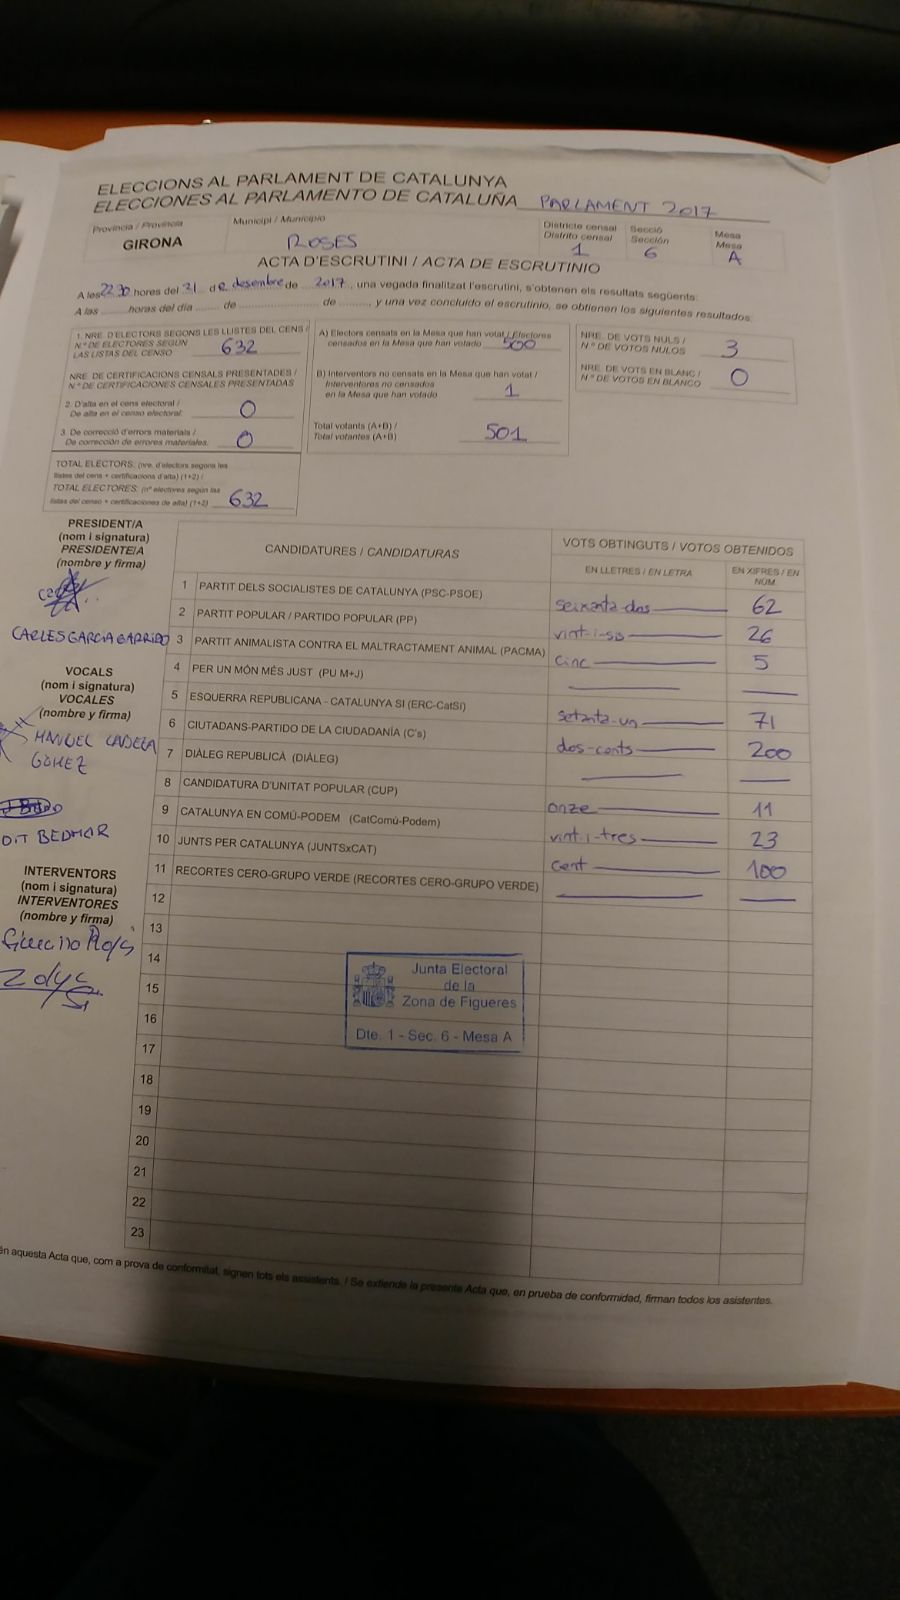 ELECCIONS AL PARLAMENT DE CATALUNYA
ELECCIONES AL PARLAMENTO DE CATALUÑA PARLAMENT 2017
Provincia / Provincia
GIRONA
Municipi / Municipio
ROSES
Districte censal
Distrito censal
1
Secció
Sección
6
Mesa
Mesa
A
ACTA D'ESCRUTINI / ACTA DE ESCRUTINIO
A les 22 30 hores del 21 de desembre de 2017, una vegada finalitzat l'escrutini, s'obtenen els resultats següents:
A las ......... horas del día ....... de ...................... de ........., y una vez concluido el escrutinio, se obtienen los siguientes resultados:
1. NRE. D'ELECTORS SEGONS LES LLISTES DEL CENS /
N.º DE ELECTORES SEGÚN
LAS LISTAS DEL CENSO 632
NRE. DE CERTIFICACIONS CENSALS PRESENTADES /
N.º DE CERTIFICACIONES CENSALES PRESENTADAS
2. D'alta en el cens electoral /
De alta en el censo electoral: 0
3. De correcció d'errors materials /
De corrección de errores materiales. 0
TOTAL ELECTORS: (nre. d'electors segons les
llistes del cens + certificacions d'alta) (1+2) /
TOTAL ELECTORES: (nº electores según las
listas del censo + certificaciones de alta) (1+2) 632
A) Electors censats en la Mesa que han votat / Electores
censados en la Mesa que han votado 500
B) Interventors no censats en la Mesa que han votat /
Interventores no censados
en la Mesa que han votado 1
Total votants (A+B) /
Total votantes (A+B) 501
NRE. DE VOTS NULS /
N.º DE VOTOS NULOS 3
NRE. DE VOTS EN BLANC /
N.º DE VOTOS EN BLANCO 0
PRESIDENT/A
(nom i signatura)
PRESIDENTE/A
(nombre y firma)
CARLES GARCIA GARRIDO
VOCALS
(nom i signatura)
VOCALES
(nombre y firma)
MANUEL
GÓMEZ
BEDMAR
INTERVENTORS
(nom i signatura)
INTERVENTORES
(nombre y firma)
CANDIDATURES / CANDIDATURAS
VOTS OBTINGUTS / VOTOS OBTENIDOS
EN LLETRES / EN LETRA
EN XIFRES / EN NÚM.
1 PARTIT DELS SOCIALISTES DE CATALUNYA (PSC-PSOE) seixanta-dos 62
2 PARTIT POPULAR / PARTIDO POPULAR (PP) vint-i-sis 26
3 PARTIT ANIMALISTA CONTRA EL MALTRACTAMENT ANIMAL (PACMA) cinc 5
4 PER UN MÓN MÉS JUST (PU M+J)
5 ESQUERRA REPUBLICANA - CATALUNYA SI (ERC-CatSí) setanta-un 71
6 CIUTADANS-PARTIDO DE LA CIUDADANÍA (C's) dos-cents 200
7 DIÀLEG REPUBLICÀ (DIÀLEG)
8 CANDIDATURA D'UNITAT POPULAR (CUP) onze 11
9 CATALUNYA EN COMÚ-PODEM (CatComú-Podem) vint-i-tres 23
10 JUNTS PER CATALUNYA (JUNTSxCAT) cent 100
11 RECORTES CERO-GRUPO VERDE (RECORTES CERO-GRUPO VERDE)
12
13
14
15
16
17
18
19
20
21
22
23
Junta Electoral
de la
Zona de Figueres
Dte. 1 - Sec. 6 - Mesa A
aquesta Acta que, com a prova de conformitat, signen tots els assistents. / Se extiende la presente Acta que, en prueba de conformidad, firman todos los asistentes.